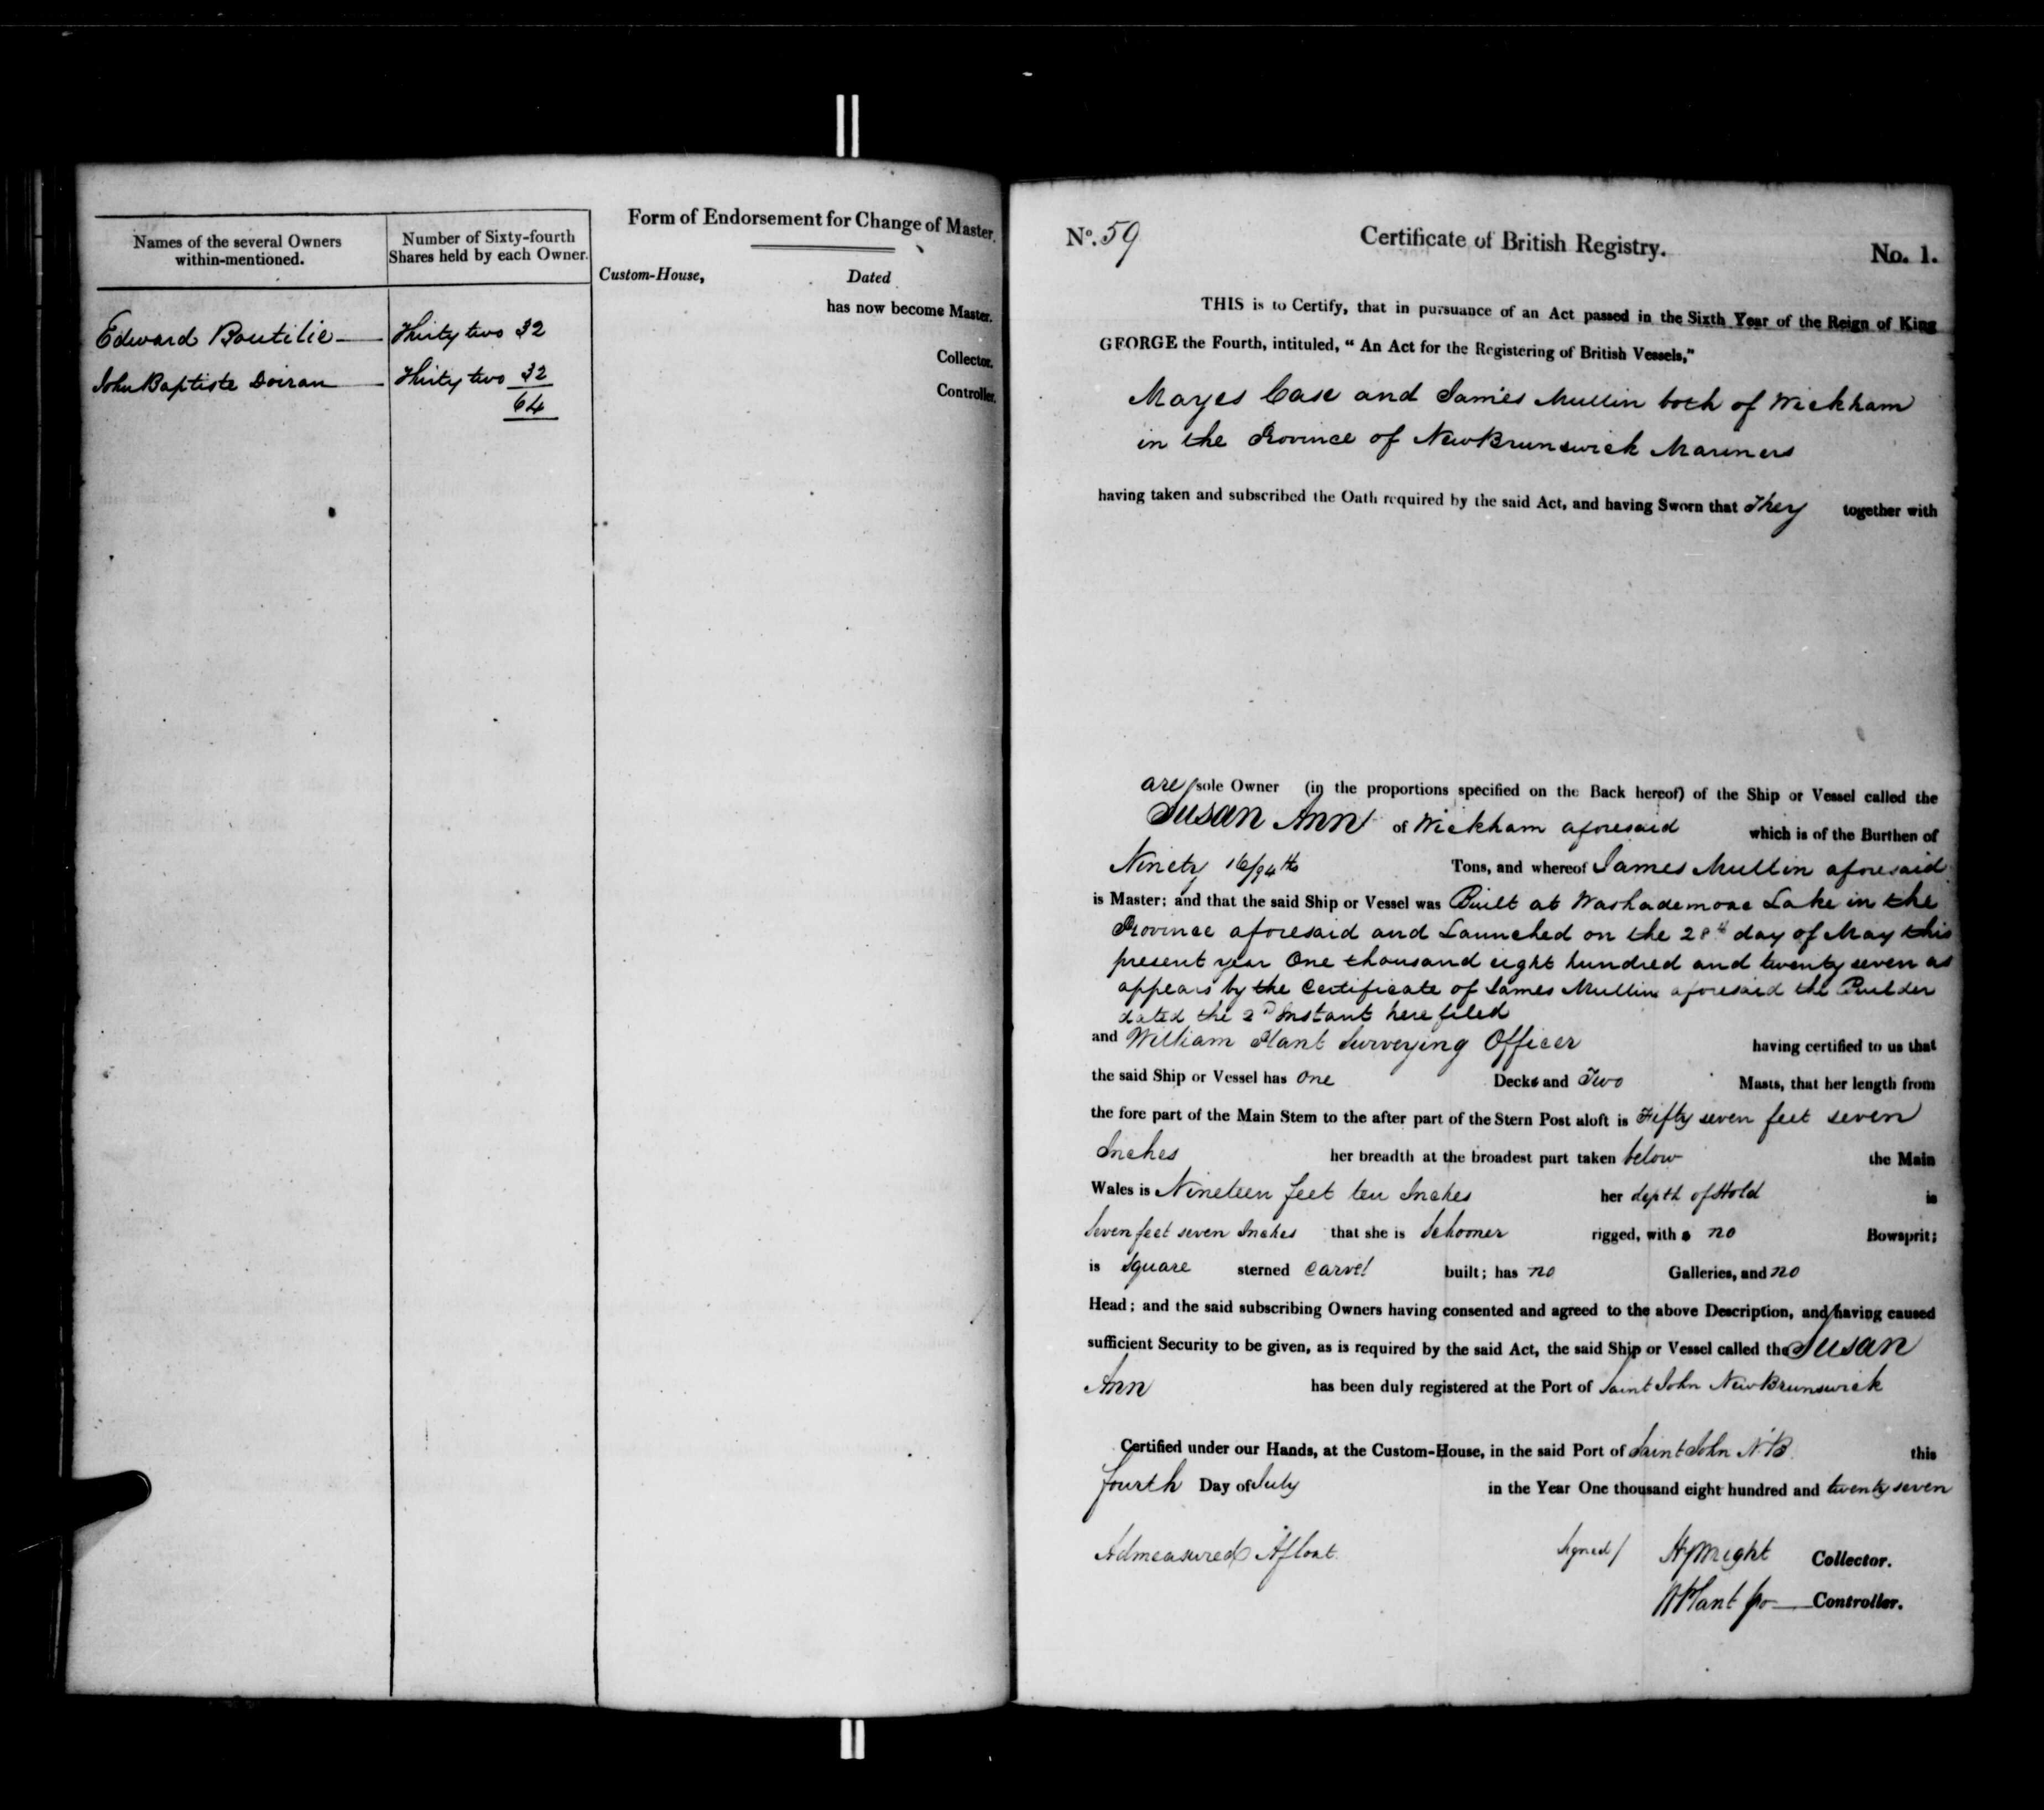 Names of the several Owners
within-mentioned.
Number of Sixty-fourth
Shares held by each Owner.
Edward Boutilie Thirty two 32
John Baptiste Doiran Thirty two 32
64
Form of Endorsement for Change of Master.
Custom-House, Dated
has now become Master.
Collector.
Controller.
No. 59 Certificate of British Registry. No. 1.
THIS is to Certify, that in pursuance of an Act passed in the Sixth Year of the Reign of King
GEORGE the Fourth, intituled, “ An Act for the Registering of British Vessels,”
Mayes Case and James Mullin both of Wickham
in the Province of New Brunswick Mariners
having taken and subscribed the Oath required by the said Act, and having Sworn that They together with
are sole Owner (in the proportions specified on the Back hereof) of the Ship or Vessel called the
Susan Ann of Wickham aforesaid which is of the Burthen of
Ninety 16/94th Tons, and whereof James Mullin aforesaid
is Master; and that the said Ship or Vessel was Built at Washademoac Lake in the
Province aforesaid and Launched on the 28th day of May this
present year One thousand eight hundred and twenty seven as
appears by the Certificate of James Mullin aforesaid the Builder
dated the 2D Instant here filed
and William Plant Surveying Officer having certified to us that
the said Ship or Vessel has One Decks and Two Masts, that her length from
the fore part of the Main Stem to the after part of the Stern Post aloft is Fifty seven feet seven
Inches her breadth at the broadest part taken below the Main
Wales is Nineteen feet ten Inches her depth of Hold is
Seven feet seven Inches that she is Schooner rigged, with a no Bowsprit;
is Square sterned Carvel built; has no Galleries, and no
Head; and the said subscribing Owners having consented and agreed to the above Description, and having caused
sufficient Security to be given, as is required by the said Act, the said Ship or Vessel called the Susan
Ann has been duly registered at the Port of Saint John New Brunswick
Certified under our Hands, at the Custom-House, in the said Port of Saint John N.B. this
fourth Day of July in the Year One thousand eight hundred and twenty seven
Admeasured Afloat. Signed/ Hy Wright Collector.
W Plant Controller.